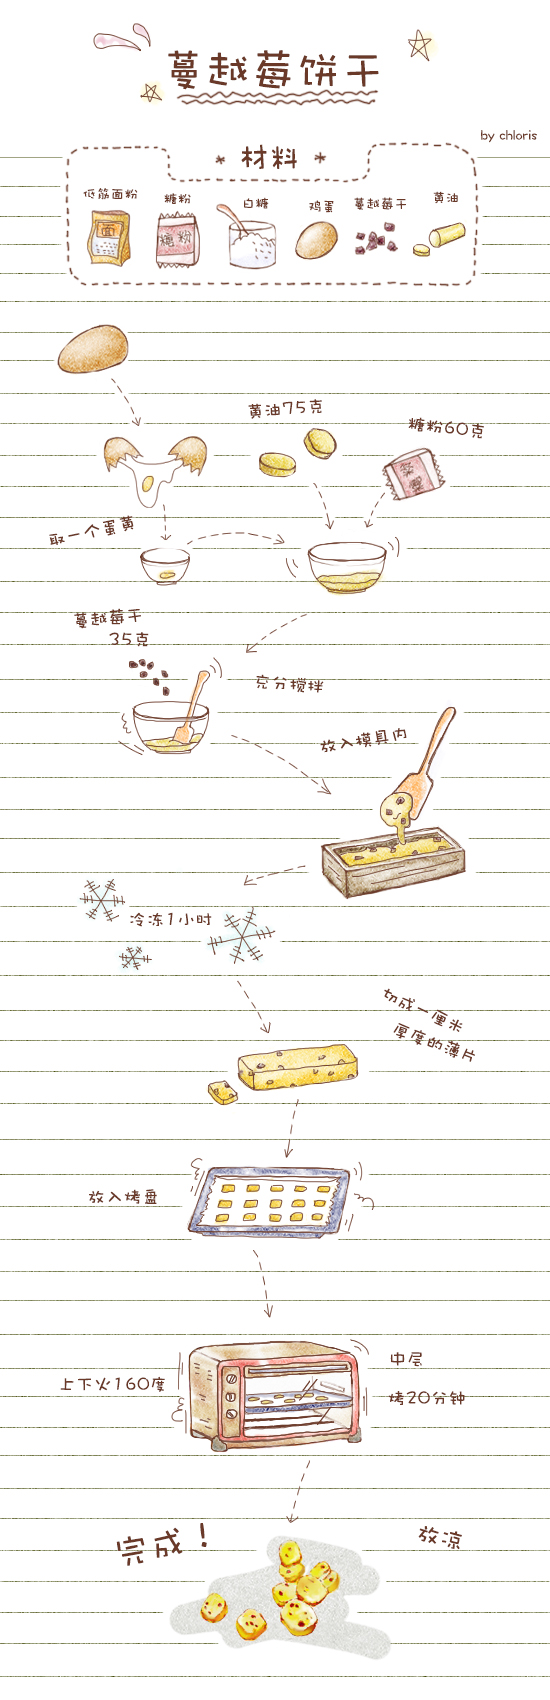 蔓越莓饼干
by chloris
* 材料 *
低筋面粉
糖粉
白糖
鸡蛋
蔓越莓干
黄油
面
糖粉
黄油75克
糖粉60克
取一个蛋黄
蔓越莓干
35克
充分搅拌
放入模具内
冷冻1小时
切成一厘米
厚度的薄片
放入烤盘
上下火160度
中层
烤20分钟
完成！
放凉